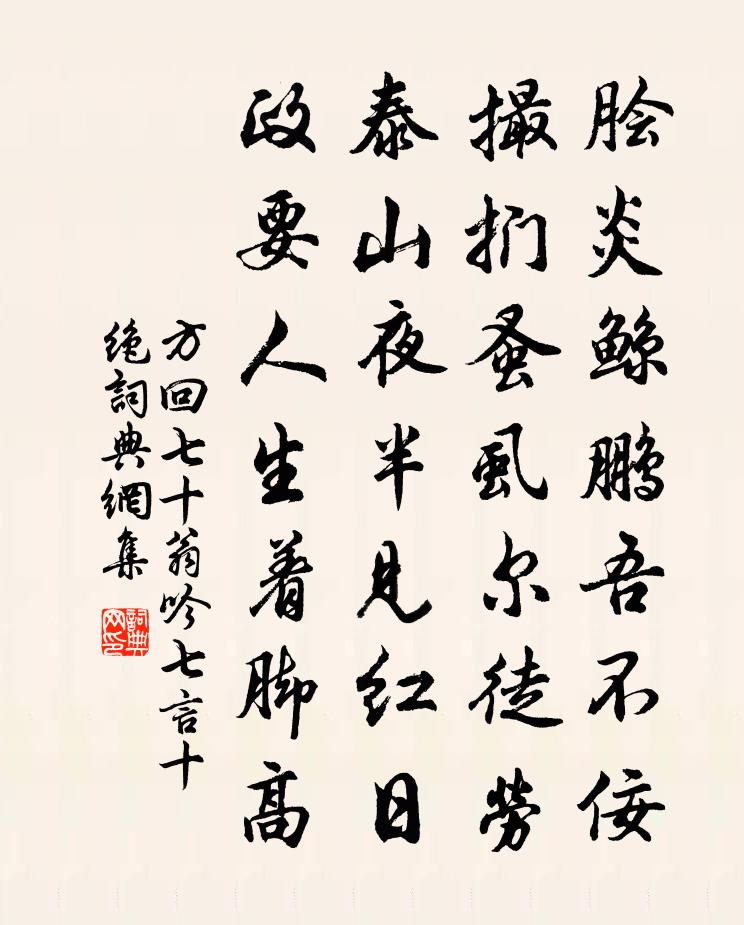 脍炎鲸鹏吾不佞
撮扪蚤虱尔徒劳
泰山夜半见红日
政要人生着脚高
方回七十翁吟七言十
绝詞典網集
詞典网印